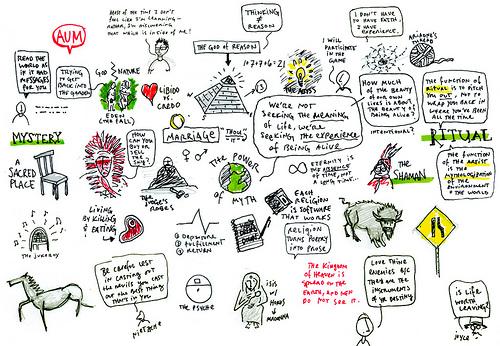 AUM
READ THE WORLD
AS IF IT HAD
MESSAGES
FOR YOU
TRYING
TO GET
BACK INTO
THE GARDEN
MOST OF THE TIME I DON'T
FEEL LIKE I'M LEARNING -
RATHER, I'M DISCOVERING
THAT WHICH IS INSIDE OF ME!
GOD
NATURE
EDEN
(PRE FALL)
LIBIDO
VS
CREDO
THINKING
≠
REASON
THE GOD OF REASON
1+7+7+6=21
I WILL
PARTICIPATE
IN THE
GAME
I DON'T HAVE
TO HAVE FAITH, I
HAVE EXPERIENCE.
ARIADNE'S
THREAD
WE'RE NOT
SEEKING THE MEANING
OF LIFE, WE'RE
SEEKING THE EXPERIENCE
OF BEING ALIVE
HOW MUCH
OF THE BEAUTY
OF OUR OWN
LIVES IS ABOUT
THE BEAUTY OF
BEING ALIVE?
INTENTIONAL?
THE FUNCTION OF
RITUAL IS TO PITCH
YOU OUT, NOT TO
WRAP YOU BACK IN
WHERE YOU'VE BEEN
ALL THE TIME
RITUAL
MYSTERY
A
SACRED
PLACE
HOW CAN
YOU BUY
OR SELL
THE
SKY?
MARRIAGE
"THOU"
"IT"
THE JUDGE'S
ROBES
THE POWER
OF MYTH
ETERNITY IS
THE ABSENCE
OF TIME, NOT
A LONG TIME...
THE
SHAMAN
THE FUNCTION
OF THE ARTIST
IS THE
MYTHOLOGIZATION
OF THE
ENVIRONMENT
& THE WORLD
THE JUKEBOX
LIVING
BY KILLING
& EATING
① DEPARTURE
② FULFILLMENT
③ RETURN
EACH
RELIGION
IS SOFTWARE
THAT WORKS
RELIGION
TURNS POETRY
INTO PROSE
BE CAREFUL LEST
IN CASTING OUT
THE DEVILS YOU CAST
OUT THE BEST THING
THAT'S IN YOU
NIETZSCHE
THE PSYCHE
ISIS
HORUS
MADONNA
THE KINGDOM
OF HEAVEN IS
SPREAD ON THE
EARTH, AND MEN
DO NOT SEE IT.
LOVE THINE
ENEMIES B/C
THEY ARE THE
INSTRUMENTS
OF YR DESTINY
IS LIFE
WORTH
LEAVING?